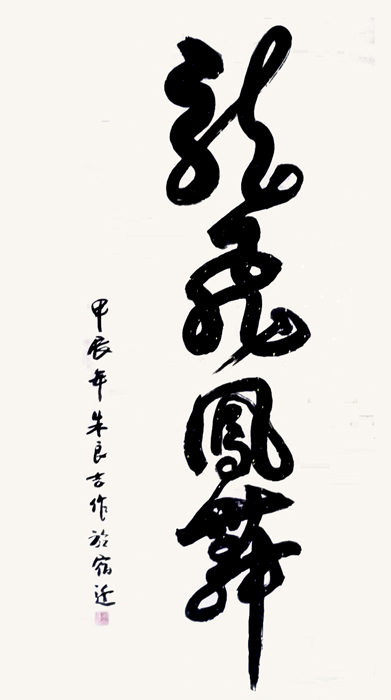 龍飛鳳舞
甲辰年朱良吉作於宿迁